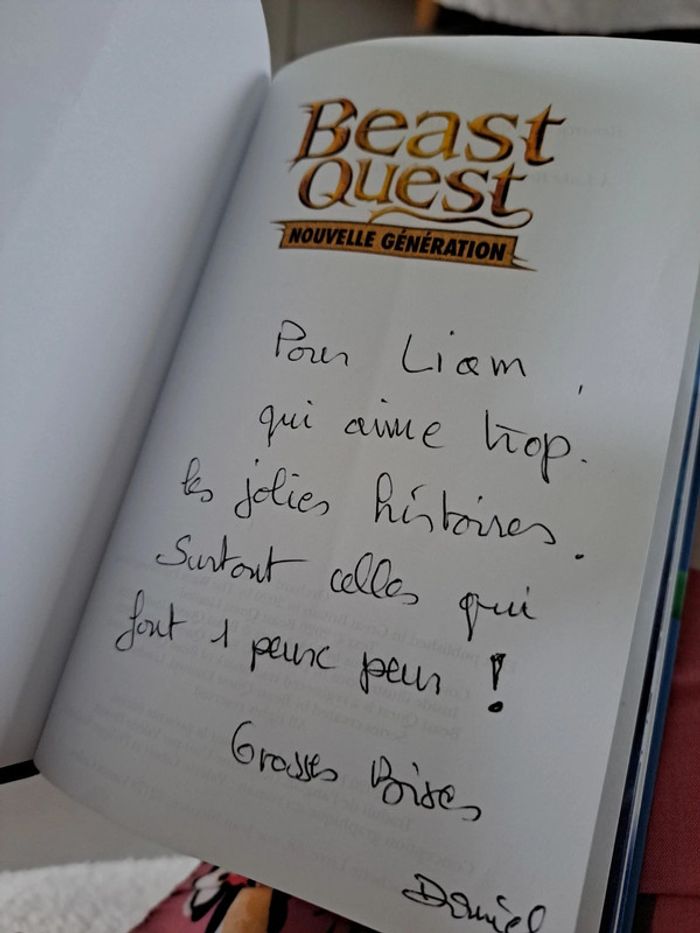 Beast
Quest
NOUVELLE GÉNÉRATION
Pour Liam,
qui aime trop
les jolies histoires.
Surtout celles qui
font 1 peux peur !
Grosses Bises
Daniel